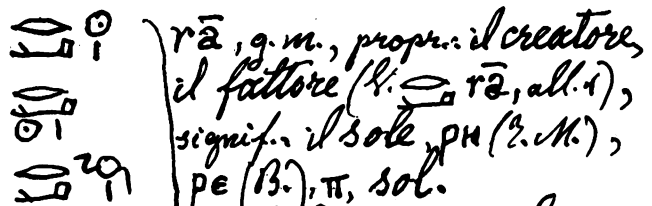 𓂋𓂝𓇳𓏤 rā̄, g. m., propr.: il creatore,
𓂋𓂝𓇳𓏤 il fattore (V. 𓂋𓂝 rā̄, all. r),
signif.: il sole, ⲣⲏ (T. M.),
ⲣⲉ (B.), ⲡ, sol.